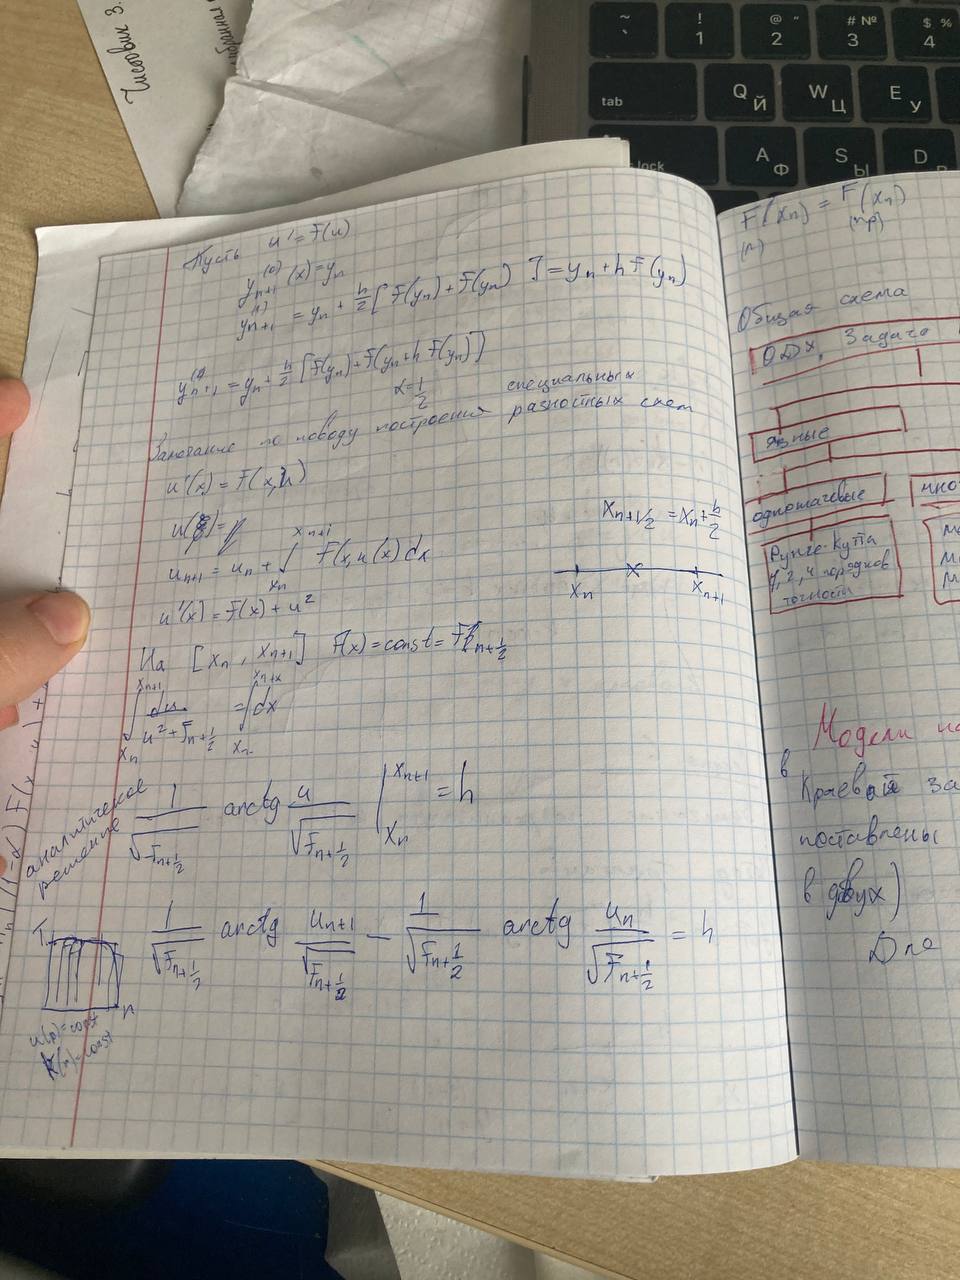 Чистовик 3.
~
!
1
@ "
2
# №
3
$ %
4
tab
Q Й
W Ц
E У
lock
A Ф
S Ы
D
Пусть u' = F(u)
y_{n+1}^{(0)}(x) = y_n
y_{n+1}^{(1)} = y_n + h/2 [F(y_n) + F(y_n)] = y_n + h F(y_n)
y_{n+1} = y_n + h/2 [F(y_n) + F(y_n + h F(y_n)]
α = 1/2
Замечание по поводу построения специальных разностных схем
u'(x) = F(x,u)
u_{n+1} = u_n + ∫_{x_n}^{x_{n+1}} F(x,u(x) dx
x_{n+1/2} = x_n + h/2
x_n x_{n+1}
u'(x) = F(x) + u²
На [x_n, x_{n+1}] F(x) = const = F_{n+1/2}
∫_{x_n}^{x_{n+1}} du/(u² + F_{n+1/2}) = ∫_{x_n}^{x_{n+x}} dx
аналитическое
решение
1/√F_{n+1/2} arctg u/√F_{n+1/2} |_{x_n}^{x_{n+1}} = h
1/√F_{n+1/2} arctg u_{n+1}/√F_{n+1/2} − 1/√F_{n+1/2} arctg u_n/√F_{n+1/2} = h
T
n
F(x_n) = F(x_n)
(л) (пр)
Общая схема
ОДУ, Задача
явные
одношаговые
Рунге-Кутта
1, 2, 4 порядков
точности
Модели
в
Краевая
поставлены
в двух)
Для